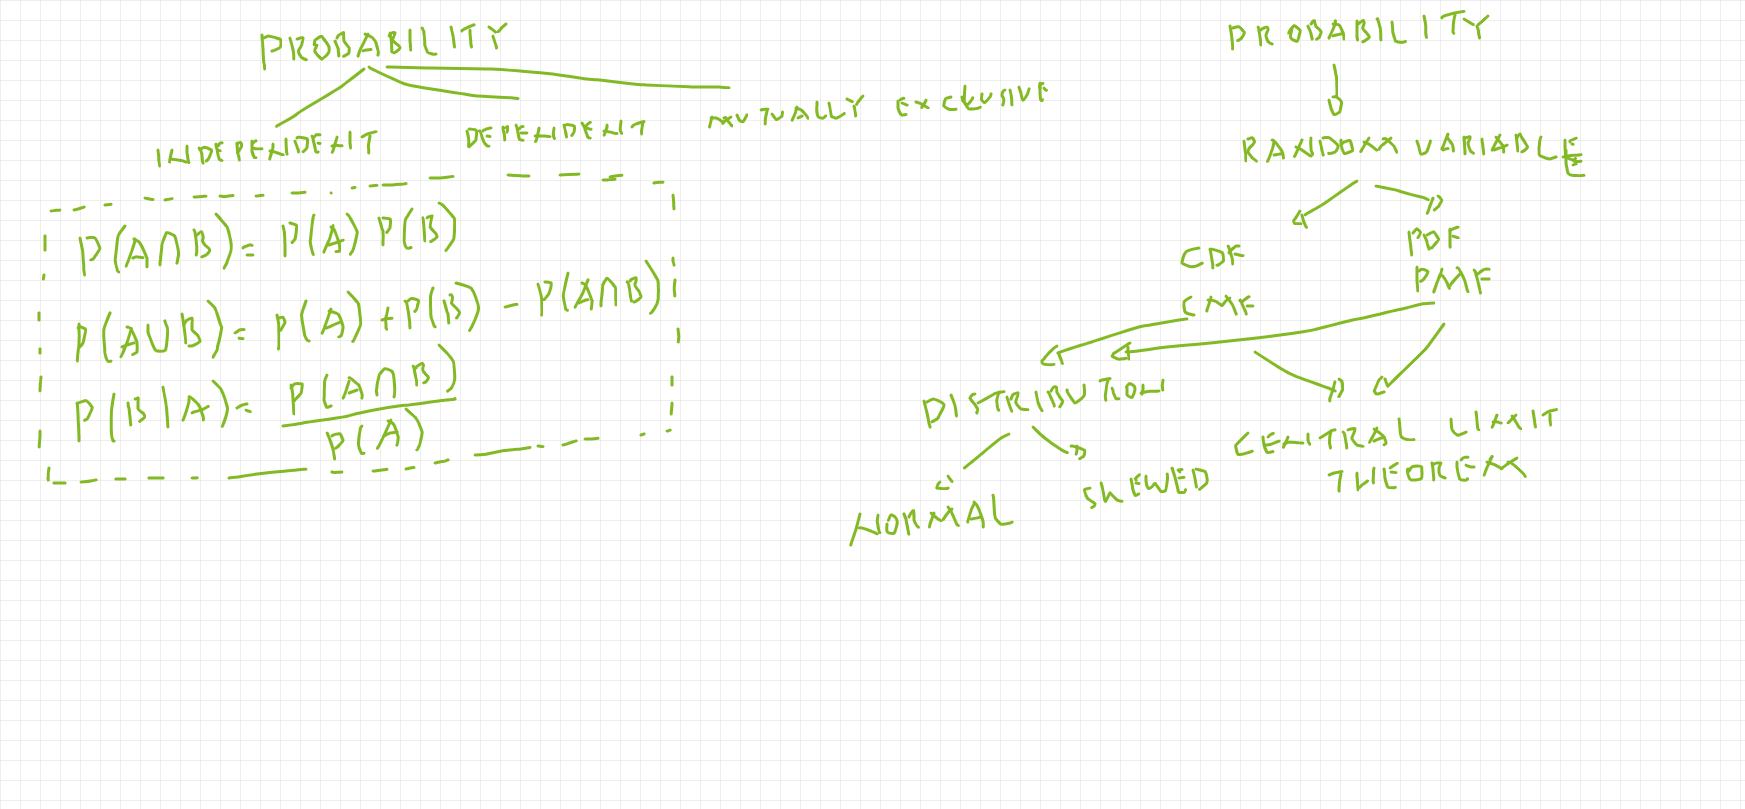 PROBABILITY
INDEPENDENT
DEPENDENT
MUTUALLY EXCLUSIVE
P(A∩B)= P(A) P(B)
P(A∪B)= P(A)+P(B) - P(A∩B)
P(B|A)= P(A∩B)
P(A)
PROBABILITY
RANDOM VARIABLE
CDF
CMF
PDF
PMF
DISTRIBUTION
CENTRAL LIMIT
THEOREM
NORMAL
SKEWED